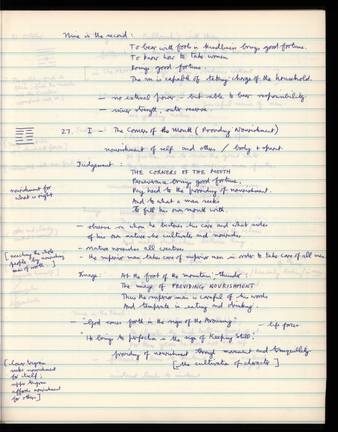 Nine is the record:
To bear with fools in kindliness brings good fortune.
To know how to take women
Brings good fortune.
The son is capable of taking charge of the household.
— no external power - but able to bear responsibility
— inner strength, outer reserve.
27. I - The Corners of the Mouth (Providing Nourishment)
nourishment of self and others / body + spirit.
Judgement:
THE CORNERS OF THE MOUTH
Perseverance brings good fortune.
Pay heed to the providing of nourishment.
And to what a man seeks
To fill his own mouth with.
nourishment for
what is right
— observe on whom he bestows his care and what sides
of his own nature he cultivates and nourishes
— nature nourishes all creatures
— the superior man takes care of superior men in order to take care of all men
[reaching the whole
people by nourishing
men of worth ]
Image: At the foot of the mountain, thunder:
The image of PROVIDING NOURISHMENT
Thus the superior man is careful of his words
And temperate in eating and drinking.
— "God comes forth in the sign of the Arousing"
- life forces
"He brings to perfection in the sign of Keeping Still:
providing of nourishment through movement and tranquillity
[the cultivation of character]
[lower trigram
seeks nourishment
for itself;
upper trigram
affords nourishment
for others]